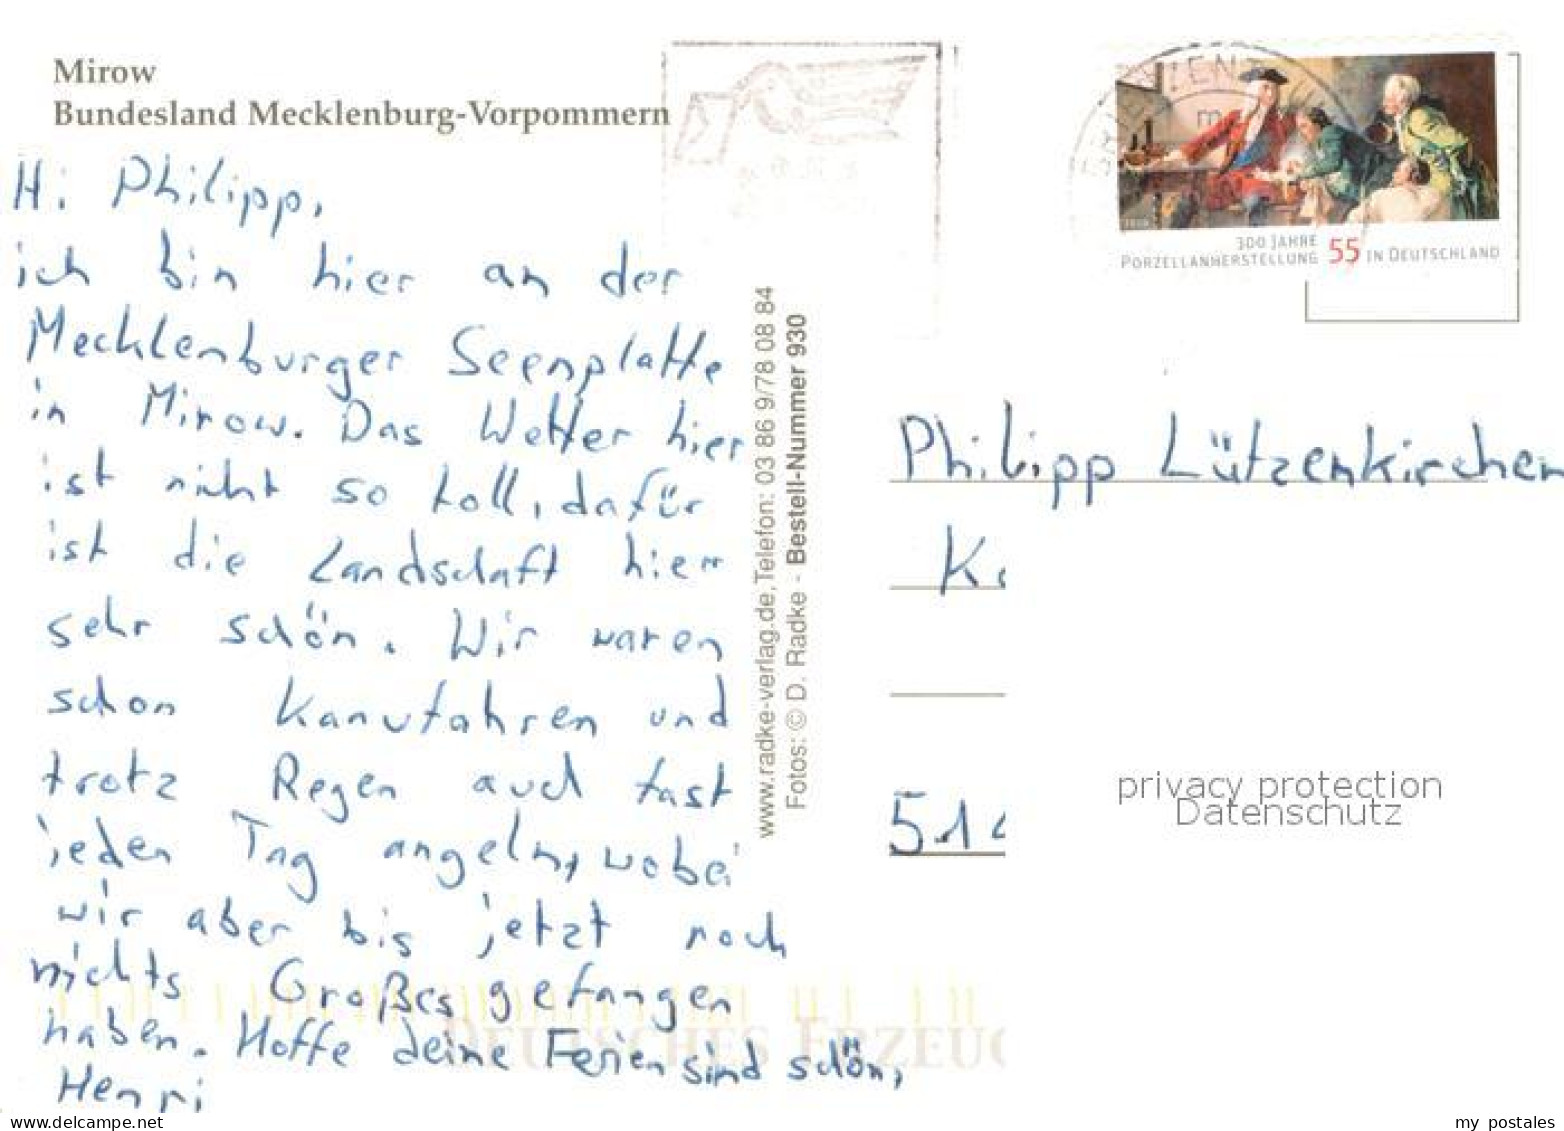 Mirow
Bundesland Mecklenburg-Vorpommern
Hi Philipp,
ich bin hier an der
Mecklenburger Seenplatte
in Mirow. Das Wetter hier
ist nicht so toll, dafür
ist die Landschaft hier
sehr schön. Wir waren
schon Kanufahren und
trotz Regen auch fast
jeden Tag angeln, wobei
wir aber bis jetzt noch
nichts Großes gefangen
haben. Hoffe deine Ferien sind schön,
Henri
www.radke-verlag.de, Telefon: 03 86 9/78 08 84
Fotos: © D. Radke - Bestell-Nummer 930
300 JAHRE
PORZELLANHERSTELLUNG 55 IN DEUTSCHLAND
Philipp Lützenkirchen
K
51
privacy protection
Datenschutz
DEUTSCHES ERZEUG
www.delcampe.net
my_postales